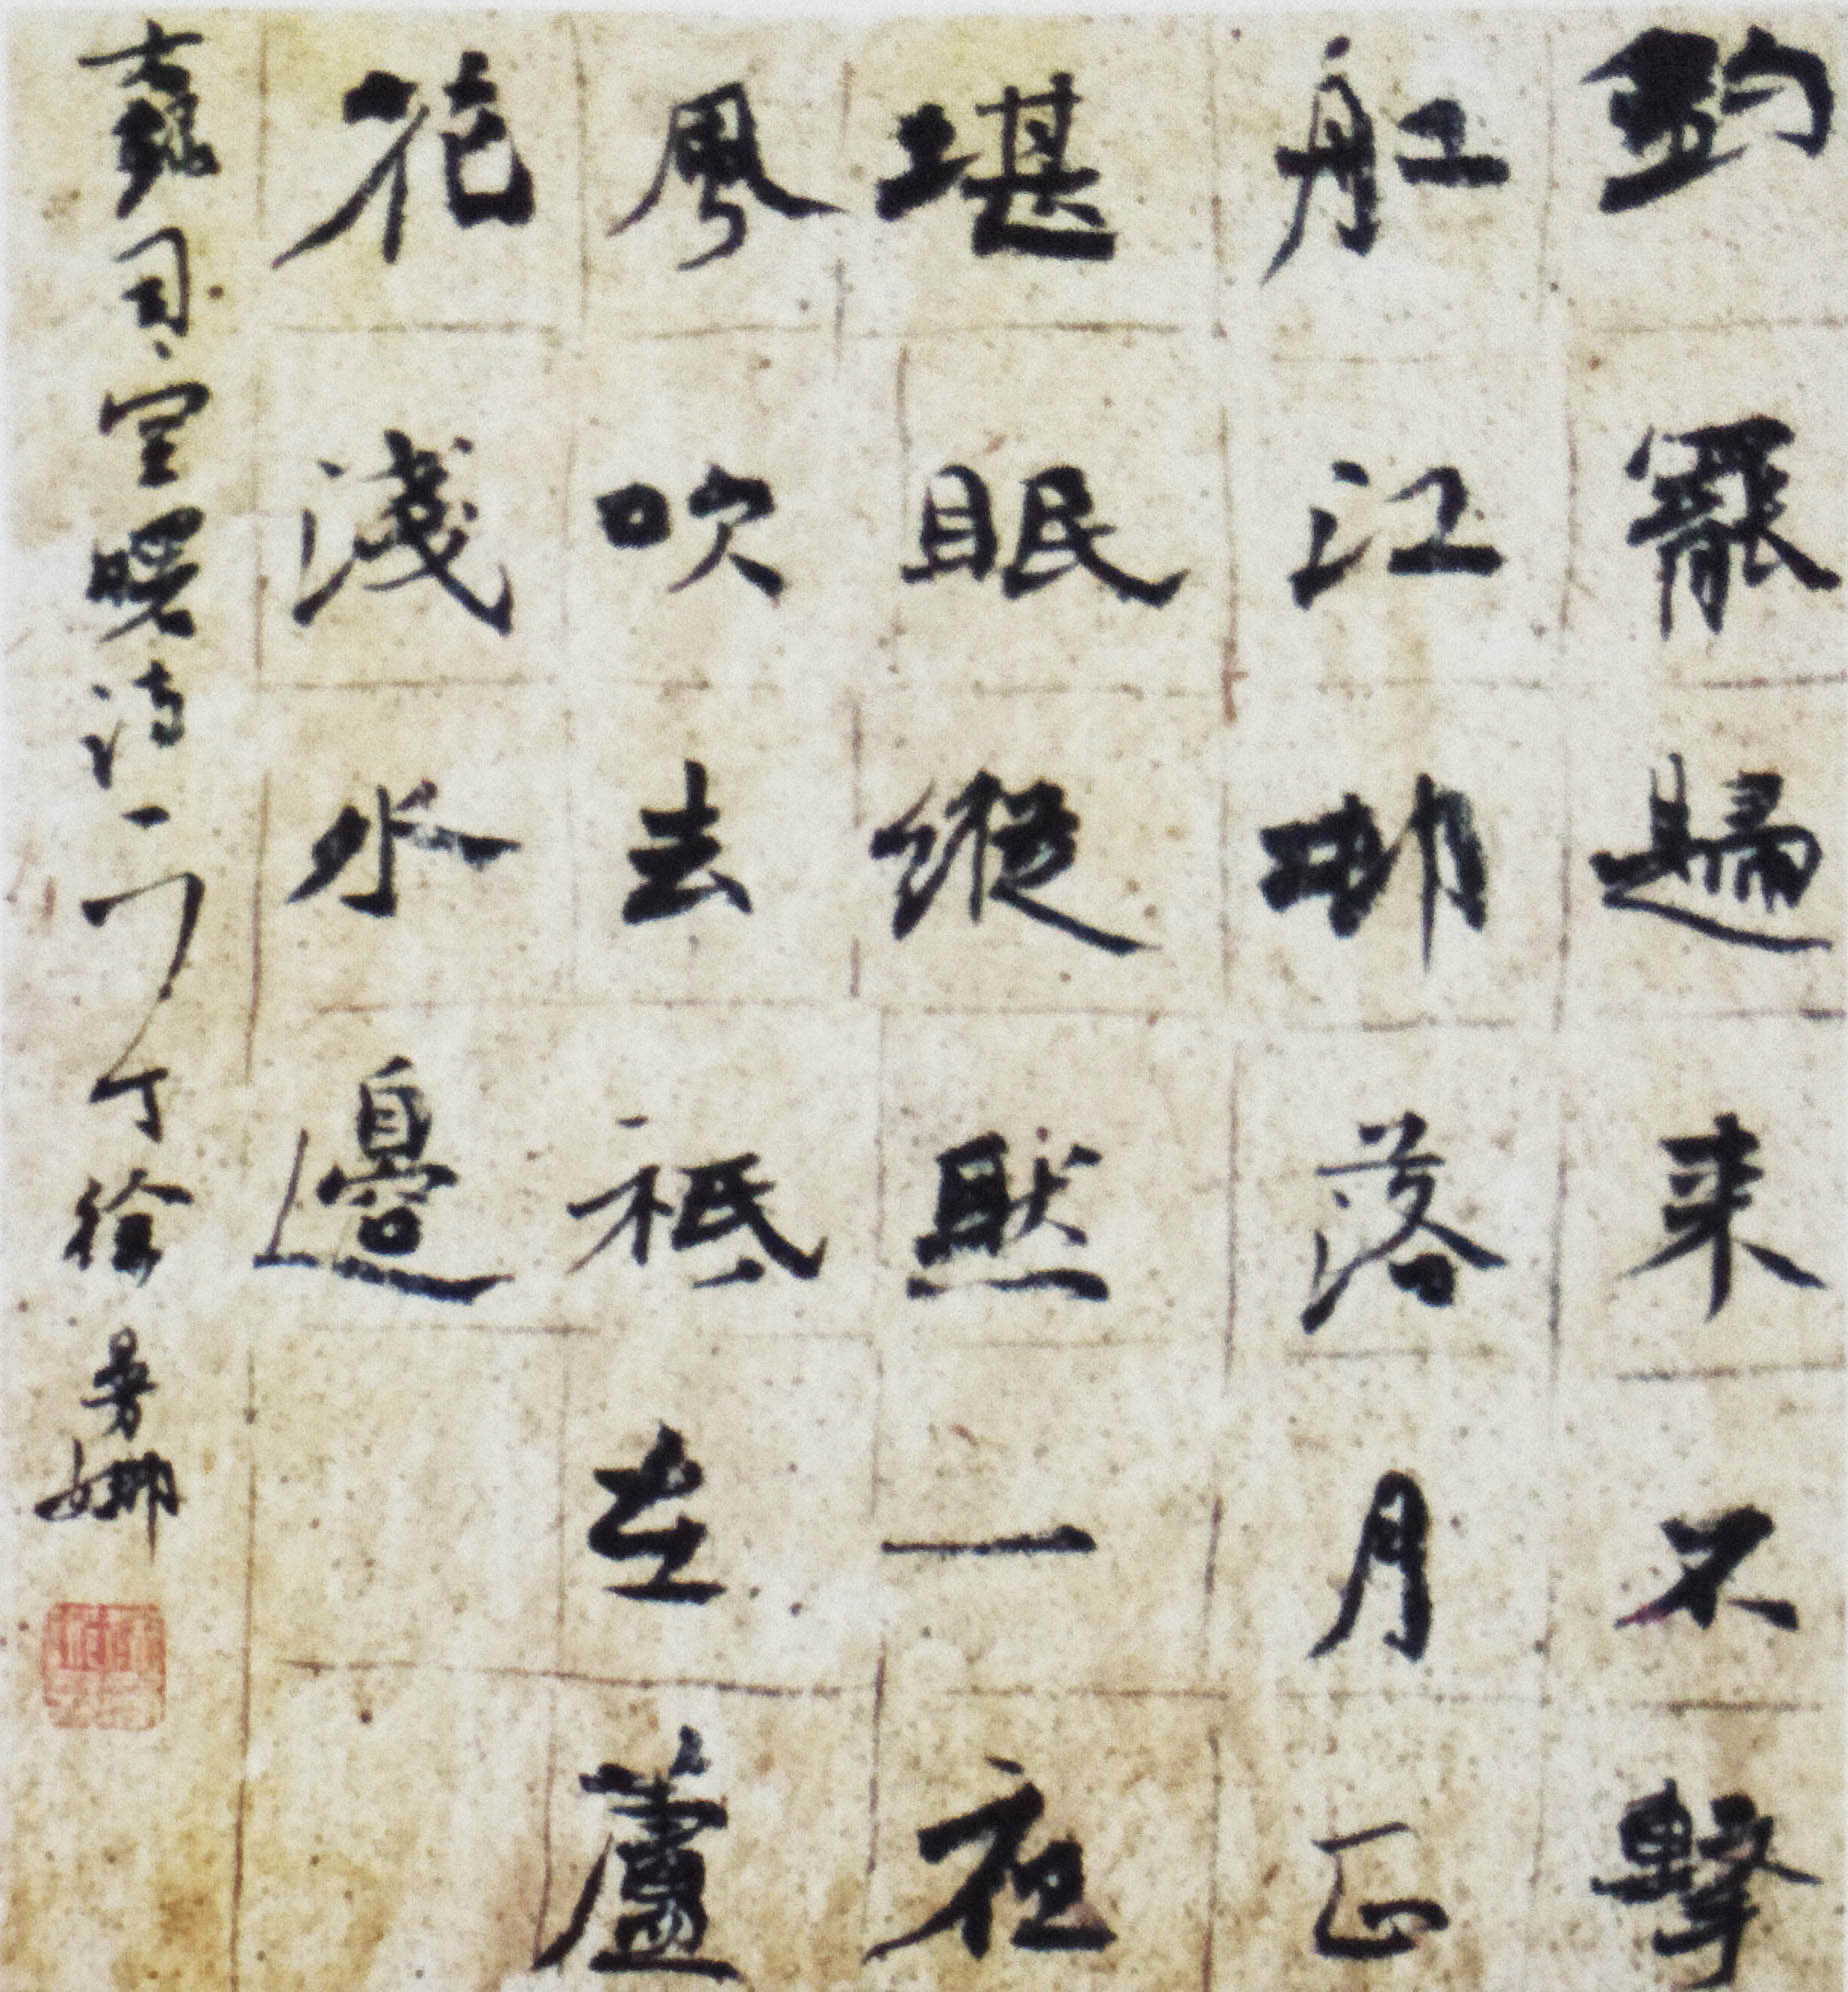 釣罷歸来不繫
舡江邨落月正
堪眠縱然一夜
風吹去祇在蘆
花淺水邊
錄司空曙诗一 徐曼娜